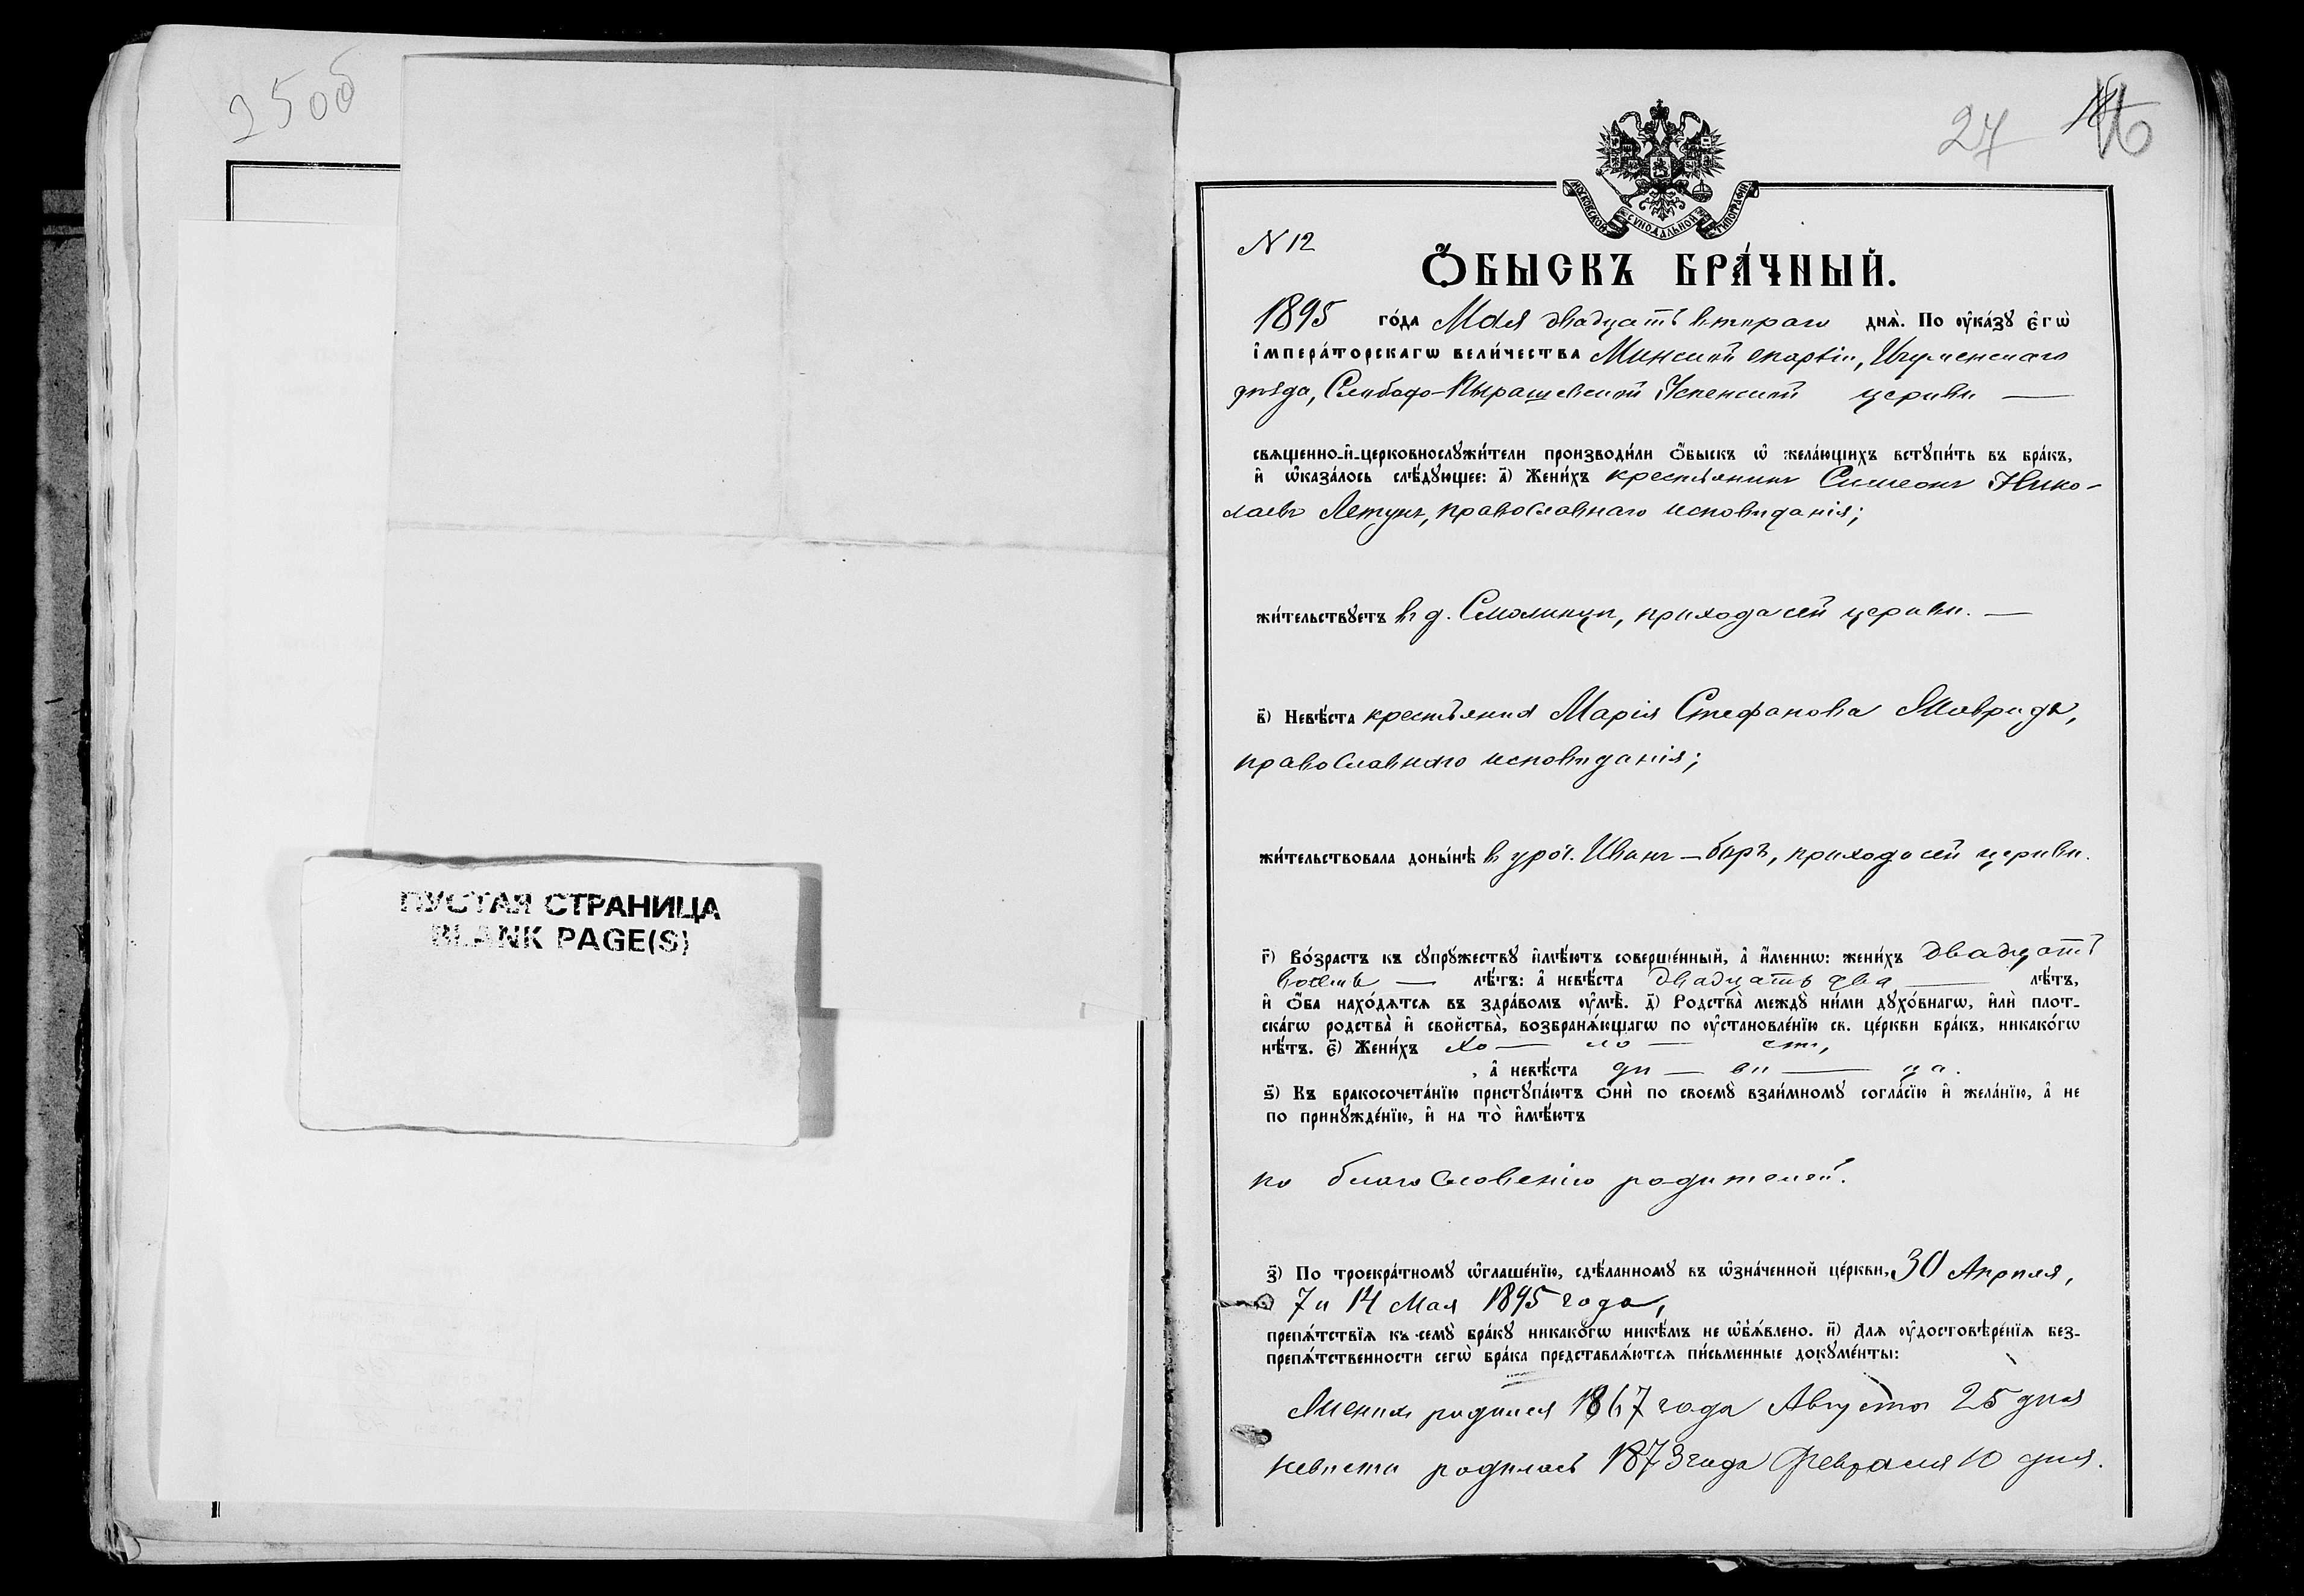 25об
ПУСТАЯ СТРАНИЦА
BLANK PAGE(S)
27
МОСКОВСКОЙ СѴНОДАЛЬНОЙ ТИПОГРАФІИ
N 12
Ѻ҆БЫСКЪ БРА́ЧНЫЙ.
1895 го́да Мая двадцать втораго днѧ̀. По ᲂу҆ка́зꙋ є҆гѡ̀
і҆мпера́торскагѡ вели́чества Минской епархіи, Игуменскаго
уѣзда, Слободо-Пырашевской Успенской церкви —
свѧще́нно-и҆-церковнослꙋжи́тели производи́ли ѻ҆́быскъ ѡ҆ жела́ющихъ встꙋпи́ть въ бра́къ,
и҆ ѡ҆каза́лось слѣ́дꙋющее: а҃) Жени́хъ крестьянинъ Симеонъ Нико-
лаевъ Летунъ, православнаго исповѣданія;
жи́тельствꙋетъ въ д. Смолинцѣ, прихода сей церкви. —
в҃) Невѣ́ста крестьянка Марія Стефанова
православнаго исповѣданія;
жи́тельствовала донынѣ въ уроч. Иванъ-боръ, прихода сей церкви.
г҃) Во́зрастъ къ сꙋпрꙋ́жествꙋ и҆мѣ́ютъ соверше́нный, а҆ и҆́меннѡ: жени́хъ двадцать
восемь — лѣ́тъ: а҆ невѣ́ста двадцать два — лѣ́тъ,
и҆ ѻ҆́ба нахо́дѧтсѧ въ здра́вомъ ᲂу҆мѣ̀. д҃) Родства̀ междꙋ̀ ни́ми дꙋхо́внагѡ, и҆лѝ плот-
ска́гѡ родства̀ и҆ свойства̀, возбранѧ́ющагѡ по ᲂу҆становле́нїю св. це́ркви бра́къ, никако́гѡ
нѣ́тъ. є҃) Жени́хъ хо — ло — стъ,
, а҆ невѣ́ста дѣ — ви — ца.
ѕ҃) Къ бракосочета́нїю пристꙋпа́ютъ ѻ҆нѝ по своемꙋ̀ взаи́мномꙋ согла́сїю и҆ жела́нїю, а҆ не
по принꙋжде́нїю, и҆ на то̀ и҆мѣ́ютъ
по благословенію родителей.
з҃) По троекра́тномꙋ ѡ҆глаше́нїю, сдѣ́ланномꙋ въ ѡ҆зна́ченной це́ркви, 30 Апрѣля,
7 и 14 Мая 1895 года,
препѧ́тствїѧ къ семꙋ̀ бра́кꙋ никако́гѡ никѣ́мъ не ѡ҆б̾ѧ́влено. и҃) Длѧ ᲂу҆достовѣре́нїѧ без-
препѧ́тственности сегѡ̀ бра́ка представлѧ́ютсѧ пи́сьменные докꙋме́нты:
Женихъ родился 1867 года Августа 25 дня
невѣста родилась 1873 года Февраля 10 дня.